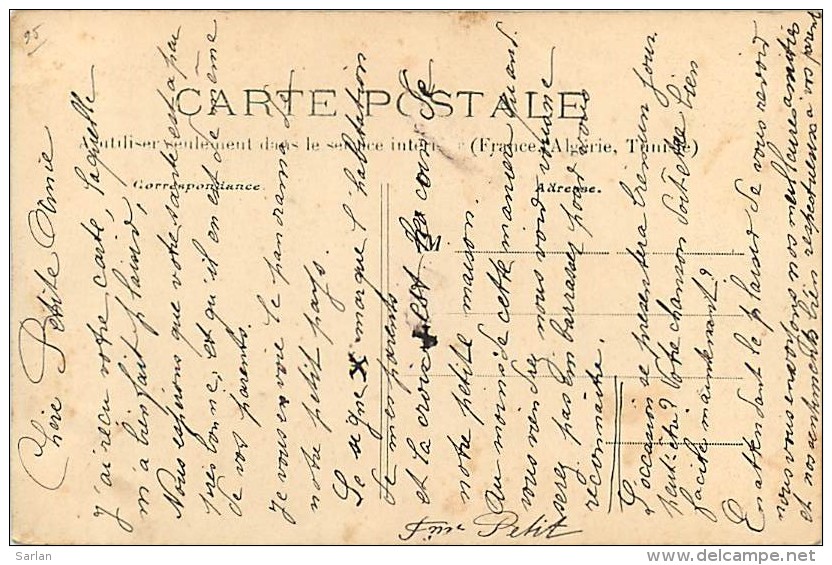 CARTE POSTALE
A utiliser seulement dans le service intérieur (France, Algérie, Tunisie)
Correspondance.
Adresse.
M
Chère Petite Amie
J'ai reçu votre carte, laquelle
m'a bien fait plaisir,
Nous espérons que votre santé est a peu
près bonne, et qu'il en est de même
de vos parents.
Je vous envoie le panorama de
notre petit pays.
Le signe x marque l'habitation
de mes parents
et la croix est le coin de
notre petite maison.
Au moins de cette manière quand
vous viendrez nous voir vous ne
serez pas embarrassés pour nous
reconnaitre.
L'occasion se présentera bien un jour
peut-être? Votre chanson doit être bien
facile maintenant?
En attendant le plaisir de vous revoir
nous vous envoyons nos meilleures amitiés
et nos sentiments très respectueux à vos parents
Petit
Sarlan
www.delcampe.net